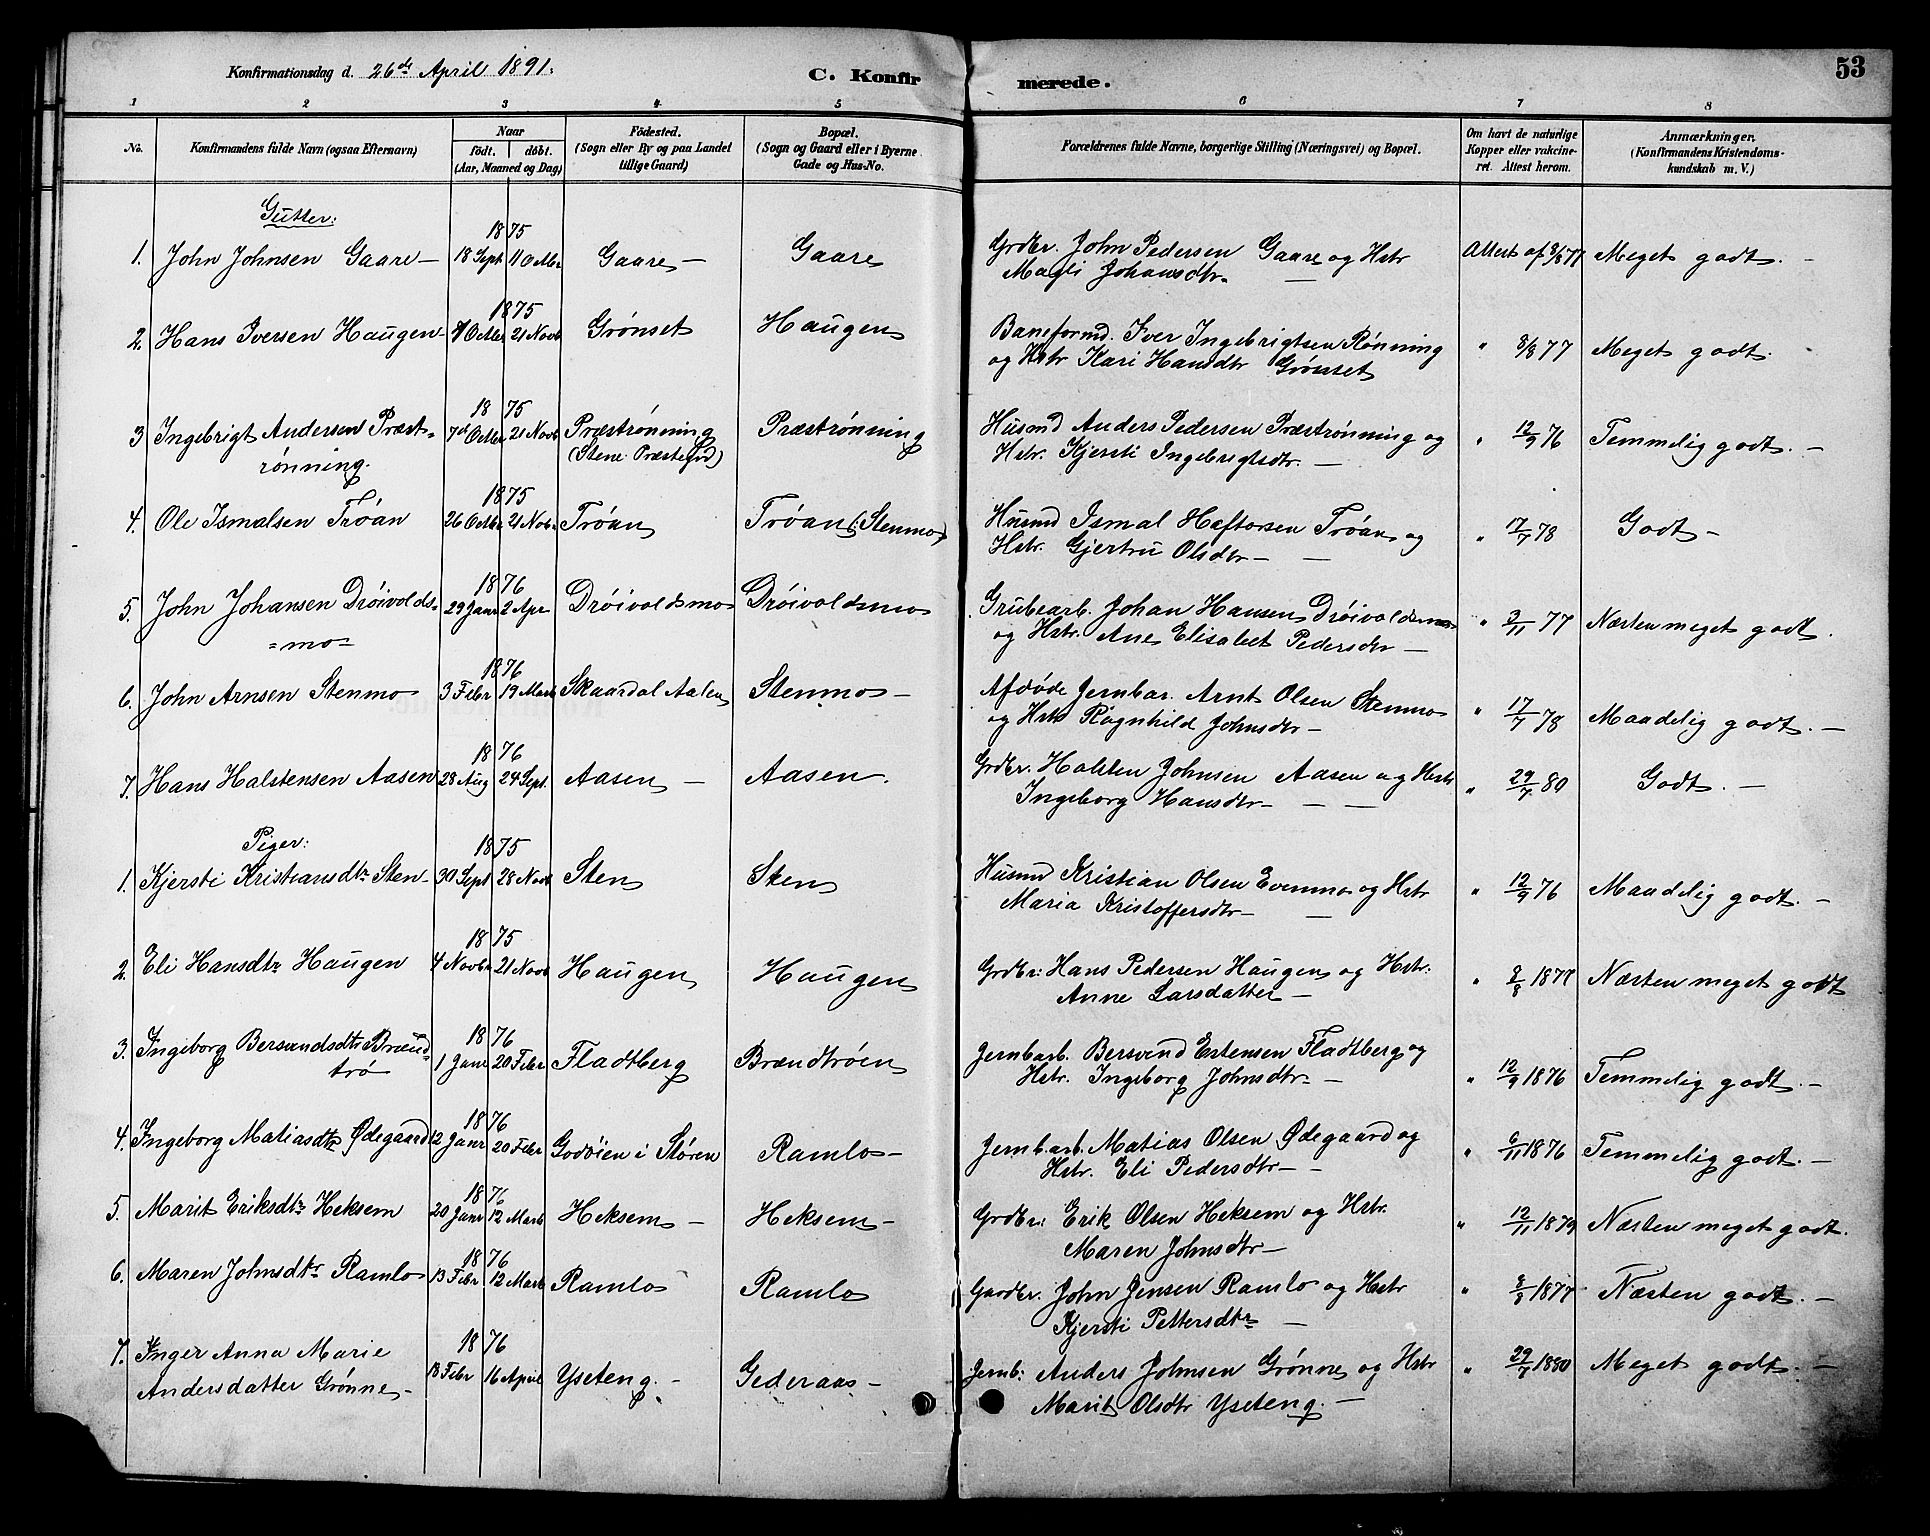 Konfirmationsdag d. 26de April 1891.
C. Konfirmerede.
53
1 2 3 4 5 6 7 8
No.
Konfirmandens fulde Navn (ogsaa Efternavn)
Naar
födt. döbt.
(Aar, Maaned og Dag)
Födested.
(Sogn eller By og paa Landet
tillige Gaard)
Bopæl.
(Sogn og Gaard eller i Byerne
Gade og Hus-No.
Forældrenes fulde Navne, borgerlige Stilling (Næringsvei) og Bopæl.
Om havt de naturlige
Kopper eller vakcine-
ret. Attest herom.
Anmærkninger.
(Konfirmandens Kristendoms-
kundskab m. V.)
Gutter:
1875
1. John Johnsen Gaare – 18 Sept 11 Octbr Gaare – Gaare Grdbr. John Pedersen Gaare og Hstr Attest af 8/8 77 Meget godt. –
Magli Johansdtr. –
1875
2. Hans Iversen Haugen – Octbr 21 Novb Grønset Haugen Baneformd. Iver Ingebrigtsen Rønning " 8/8 77 Meget godt.
og Hstr Kari Hansdtr Grønset
1875
3 Ingebrigt Andersen Præst- 7d Octbr 21 Novb Præstrønning Præstrønning Husmd Anders Pedersen Præstrønning og " 12/9 76 Temmelig godt. –
rønning. (Stene Præstegrd) Hstr. Kjersti Ingebrigtsdtr. –
1875
4. Ole Ismalsen Trøan 26 Octbr 21 Nov. Trøan Trøan (: Stenmo) Husmd Ismal Haftorsen Trøan og " 17/7 78 Godt –
Hstr. Gjertru Olsdtr – –
1876
5. John Johansen Drøivolds- 29 Janr 2 Apr Drøivoldsmo Drøivoldsmo Grubearb. Johan Hansen Drøivoldsmo " 3/11 77 Næsten meget godt.
=mo og Hstr. Ane Elisabet Pedersdtr –
1876
6. John Arnsen Stenmo 3 Febr 19 Marts Skaardal Aalen Stenmo – Afdøde Jernbar. Arnt Olsen Stenmo " 17/7 78 Maadelig godt. –
og Hstr Ragnhild Johnsdtr –
1876
7. Hans Halstensen Aasen 28 Aug 24 Sept. Aasen – Aasen. Grdbr. Halsten Johnsen Aasen og Hstr " 29/7 80 Godt. –
Ingeborg Hansdtr – – –
Piger:
1875
1. Kjersti Kristiansdtr Sten – 30 Sept 28 Novb Sten Sten Husmd Kristian Olsen Evenmo og Hstr " 12/9 76 Maadelig godt. –
Maria Kristoffersdtr – –
1875
2. Eli Hansdtr Haugen 4 Novbr 21 Novb Haugen Haugen Grdbr: Hans Pedersen Haugen og Hstr: " 8/8 1877 Næsten meget godt
Anne Larsdatter –
1876
3. Ingeborg Bersvendsdtr Brænd- 1 Janr 20 Febr Fladtberg Brændtrøen Jernbarb. Bersvend Estensen Fladtberg og " 12/9 1876 Temmelig godt. –
trø Hstr. Ingeborg Johnsdtr –
1876
4. Ingeborg Matiasdtr Ødegaard 12 Janr 20 Febr Godøien i Støren Ramlo – Jernb.arb. Matias Olsen Ødegaard og " 6/11 1876 Temmelig godt. –
Hstr. Eli Pedersdtr – –
1876
5. Marit Eriksdtr Heksem 20 Janr 12 Marts Heksem – Heksem – Grdbr: Erik Olsen Heksem og Hstr. " 12/11 1879 Næsten meget godt.
Maren Johnsdtr –
1876
6. Maren Johnsdtr Ramlo 13 Febr. 12 Marts Ramlo Ramlo Gaardbr. John Jensen Ramlo og Hstr " 8/8 1877 Næsten godt. –
Kjersti Pettersdtr –
1876
7. Inger Anna Marie 18 Febr 16 April Yseteng. – Gederaas – Jernb: Anders Johnsen Grønne og Hstr " 29/7 1880 Meget godt. –
Andersdatter Grønne – Marit Olsdtr Yseteng. –